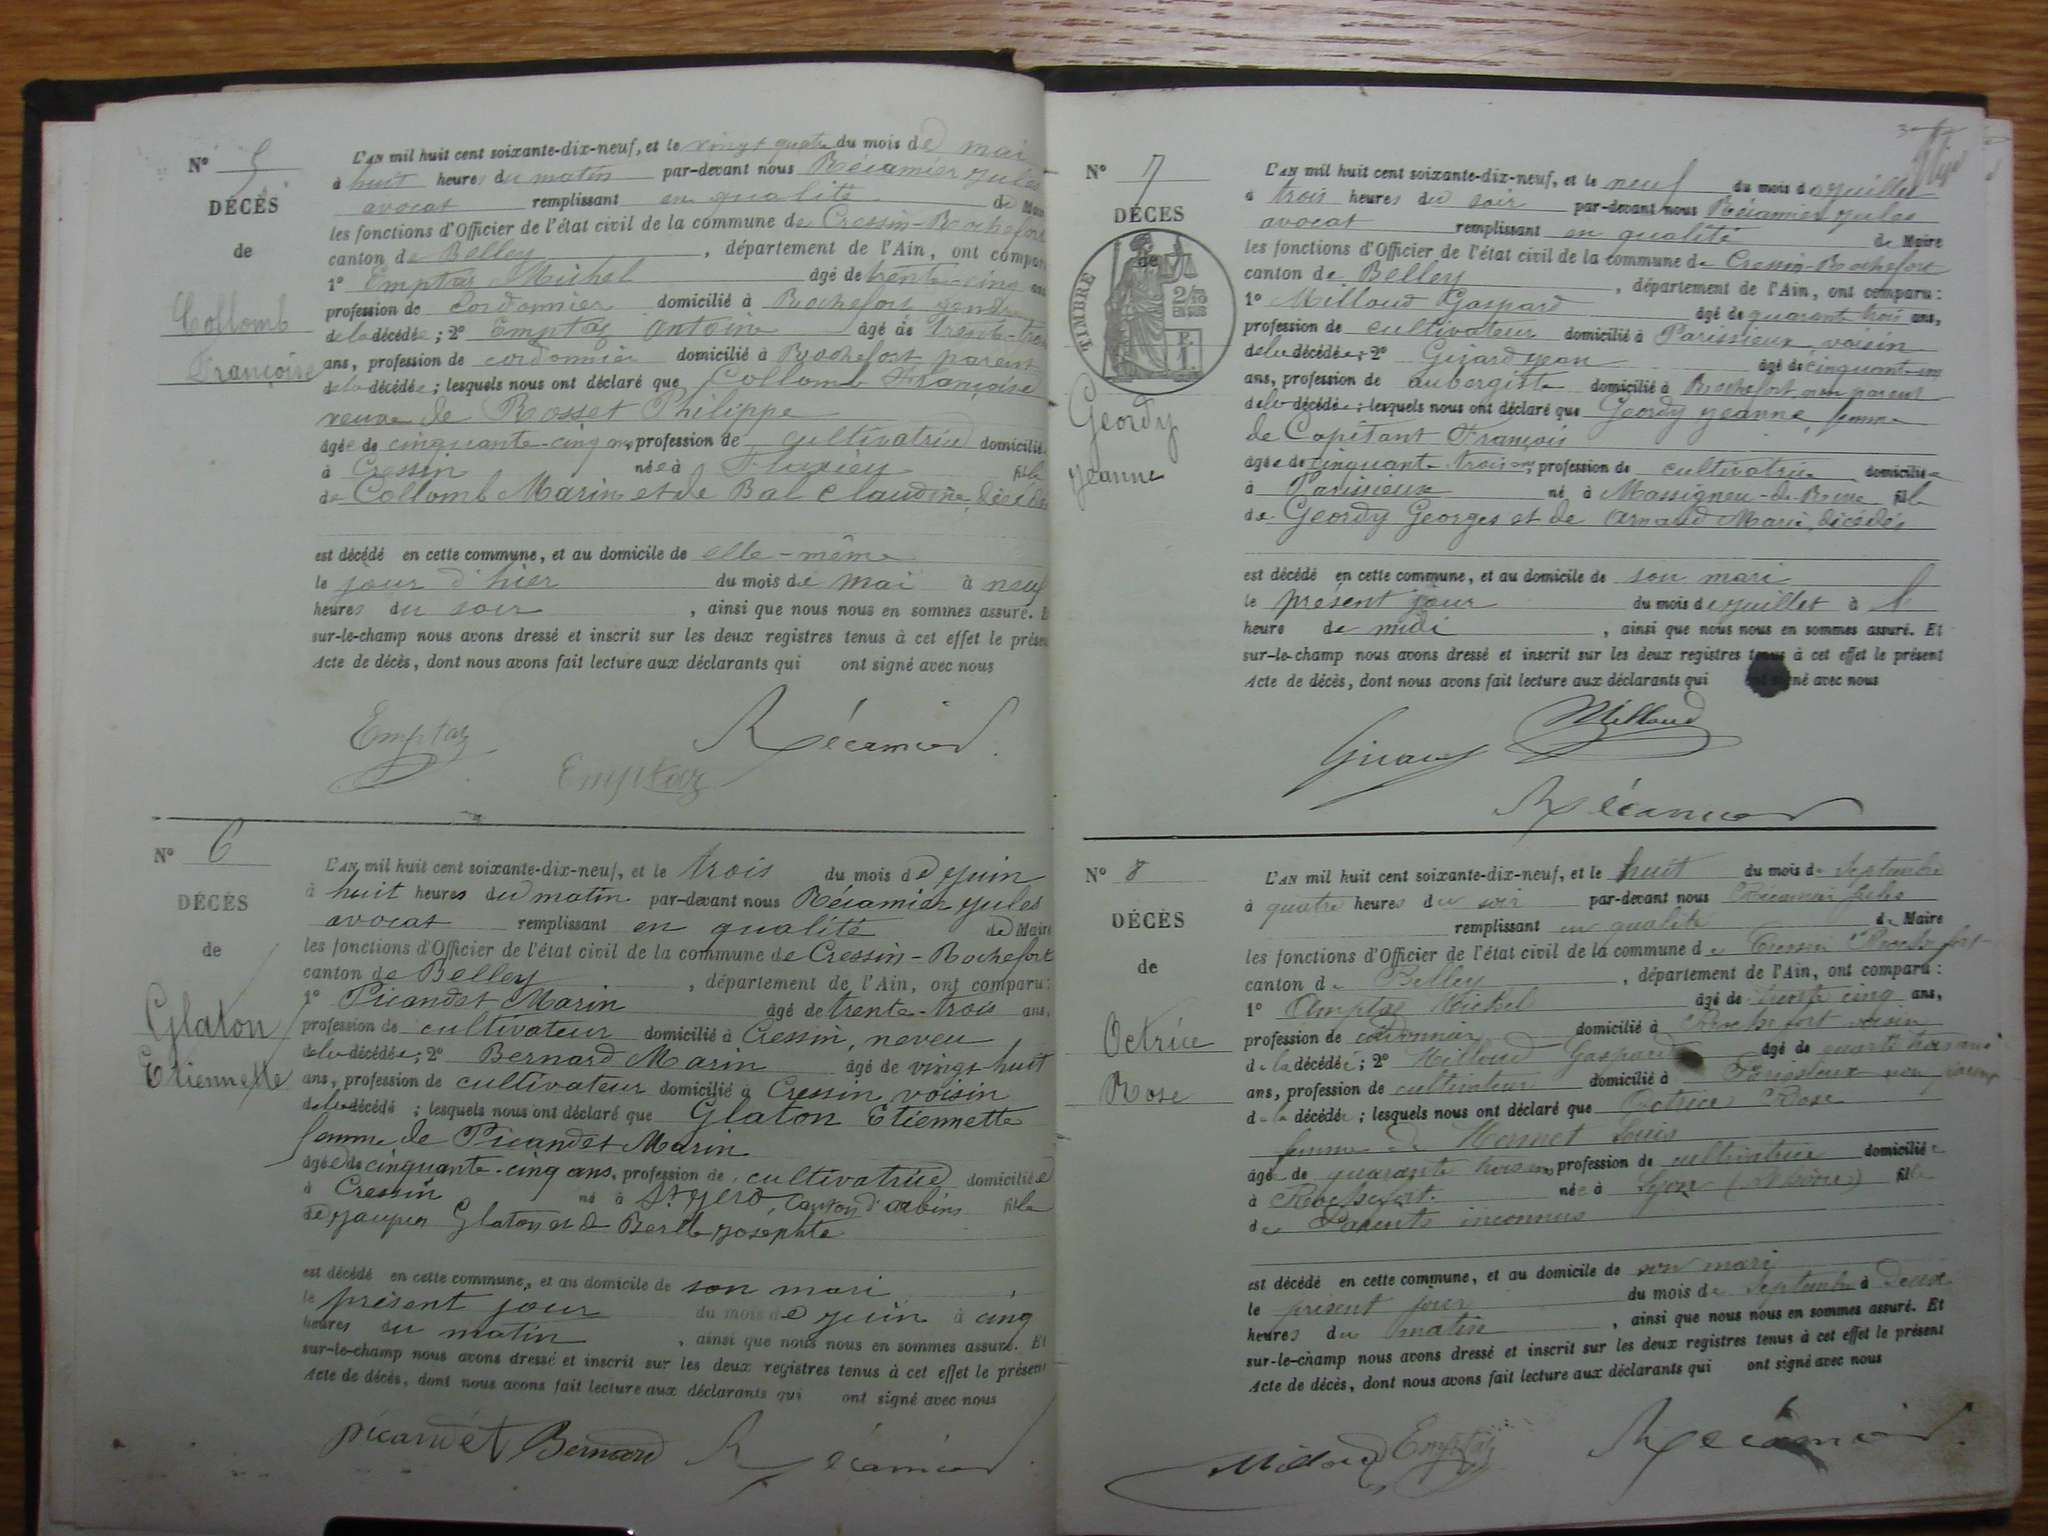 N° 5
DÉCÈS
de
Collomb
Françoise
L'AN mil huit cent soixante-dix-neuf, et le vingt quatre du mois de mai
à huit heures du matin par-devant nous Récamier Jules
avocat remplissant en qualité de Maire
les fonctions d'Officier de l'état civil de la commune de Cressin-Rochefort
canton de Belley, département de l'Ain, ont compar
1° Emptaz Michel âgé de trente-cinq ans
profession de cordonnier domicilié à Rochefort gendre
de la décédée; 2° Emptaz Antoine âgé de trente-trois
ans, profession de cordonnier domicilié à Rochefort parent
de la décédée; lesquels nous ont déclaré que Collomb Françoise
veuve de Rosset Philippe
âgée de cinquante-cinq ans, profession de cultivatrice domiciliée
à Cressin née à Flaxieu fille
de Collomb Marin et de Bal Claudine, décédés
est décédé en cette commune, et au domicile de elle-même
le jour d'hier du mois de mai à neuf
heures du soir, ainsi que nous nous en sommes assuré. Et
sur-le-champ nous avons dressé et inscrit sur les deux registres tenus à cet effet le présent
Acte de décès, dont nous avons fait lecture aux déclarants qui ont signé avec nous
Emptaz Récamier
Emptaz
N° 6
DÉCÈS
de
Glaton
Etiennette
L'AN mil huit cent soixante-dix-neuf, et le trois du mois de Juin
à huit heures du matin par-devant nous Récamier Jules
avocat remplissant en qualité de Maire
les fonctions d'Officier de l'état civil de la commune de Cressin-Rochefort
canton de Belley, département de l'Ain, ont comparu:
1° Picandet Marin âgé de trente-trois ans,
profession de cultivateur domicilié à Cressin, neveu
de la décédée; 2° Bernard Marin âgé de vingt huit
ans, profession de cultivateur domicilié à Cressin voisin
de la décédé; lesquels nous ont déclaré que Glaton Etiennette
femme de Picandet Marin
âgée de cinquante-cinq ans, profession de cultivatrice domiciliée
à Cressin né à canton d' fille
de Glaton et de Josephte
est décédé en cette commune, et au domicile de son mari
le présent jour du mois de Juin à cinq
heures du matin, ainsi que nous nous en sommes assuré. Et
sur-le-champ nous avons dressé et inscrit sur les deux registres tenus à cet effet le présent
Acte de décès, dont nous avons fait lecture aux déclarants qui ont signé avec nous
picandet Bernard Récamier
N° 7
DÉCÈS
de
TIMBRE
2/10
EN SUS
Geordy
Jeanne
L'AN mil huit cent soixante-dix-neuf, et le neuf du mois de Juillet
à trois heures du soir par-devant nous Récamier Jules
avocat remplissant en qualité de Maire
les fonctions d'Officier de l'état civil de la commune de Cressin-Rochefort
canton de Belley, département de l'Ain, ont comparu:
1° Milloud Gaspard âgé de quarante trois ans,
profession de cultivateur domicilié à Parissieux, voisin
de la décédée; 2° Girard Jean âgé de cinquante-un
ans, profession de aubergiste domicilié à Rochefort non parent
de la décédée; lesquels nous ont déclaré que Geordy Jeanne, femme
de Capitant François
âgée de cinquante-trois ans, profession de cultivatrice domiciliée
à Parissieux né à Massignieu-de-Rive fille
de Geordy Georges et de Arnaud Marie, décédés
est décédé en cette commune, et au domicile de son mari
le présent jour du mois de juillet à 1
heure de midi, ainsi que nous nous en sommes assuré. Et
sur-le-champ nous avons dressé et inscrit sur les deux registres tenus à cet effet le présent
Acte de décès, dont nous avons fait lecture aux déclarants qui ont signé avec nous
Girard Milloud
Récamier
N° 8
DÉCÈS
de
Octrice
Rose
L'AN mil huit cent soixante-dix-neuf, et le huit du mois de Septembre
à quatre heures du soir par-devant nous Récamier Jules
remplissant en qualité de Maire
les fonctions d'Officier de l'état civil de la commune de Cressin Rochefort
canton de Belley, département de l'Ain, ont comparu:
1° Emptaz Michel âgé de trente cinq ans,
profession de cordonnier domicilié à Rochefort voisin
de la décédée; 2° Milloud Gaspard âgé de quarante trois
ans, profession de cultivateur domicilié à non parent
de la décédée; lesquels nous ont déclaré que Octrice Rose
femme de Mermet Louis
âgé de quarante trois ans, profession de cultivatrice domiciliée
à Rochefort née à Lyon (Rhône) fille
de Parents inconnus
est décédé en cette commune, et au domicile de son mari
le présent jour du mois de Septembre à deux
heures du matin, ainsi que nous nous en sommes assuré. Et
sur-le-champ nous avons dressé et inscrit sur les deux registres tenus à cet effet le présent
Acte de décès, dont nous avons fait lecture aux déclarants qui ont signé avec nous
Milloud Emptaz Récamier